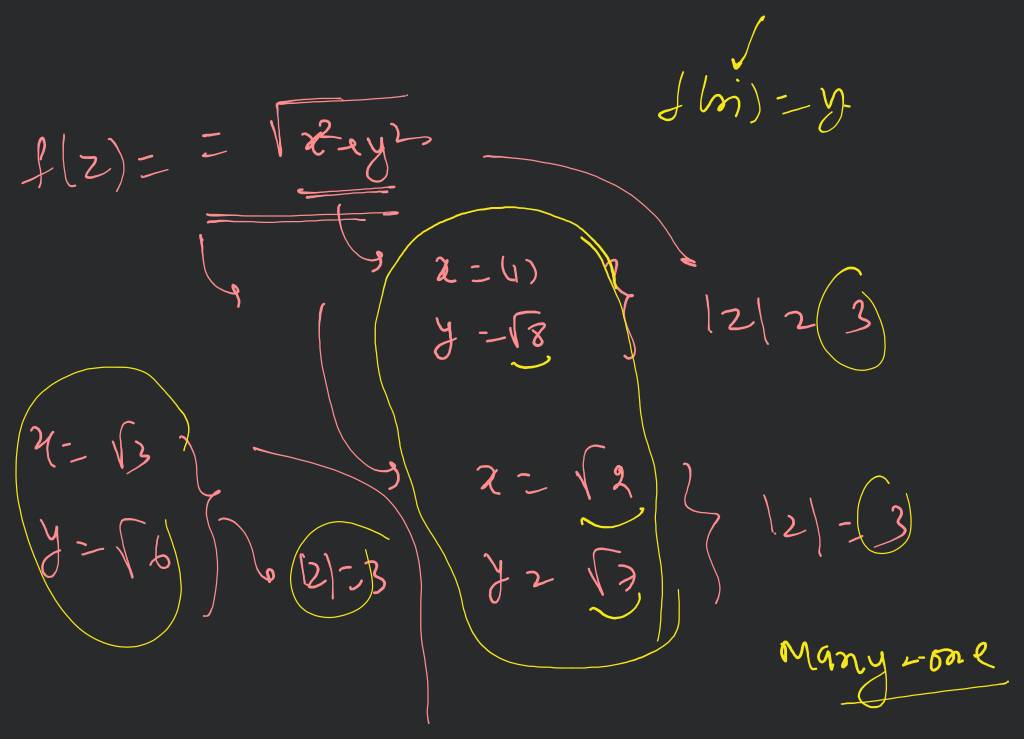 f(x) = y
f(z) = = √x²+y²
x = (1)
y = √8
|z| = 3
x = √3
y = √6
|z| = 3
x = √2
y = √7
|z| = 3
Many-one